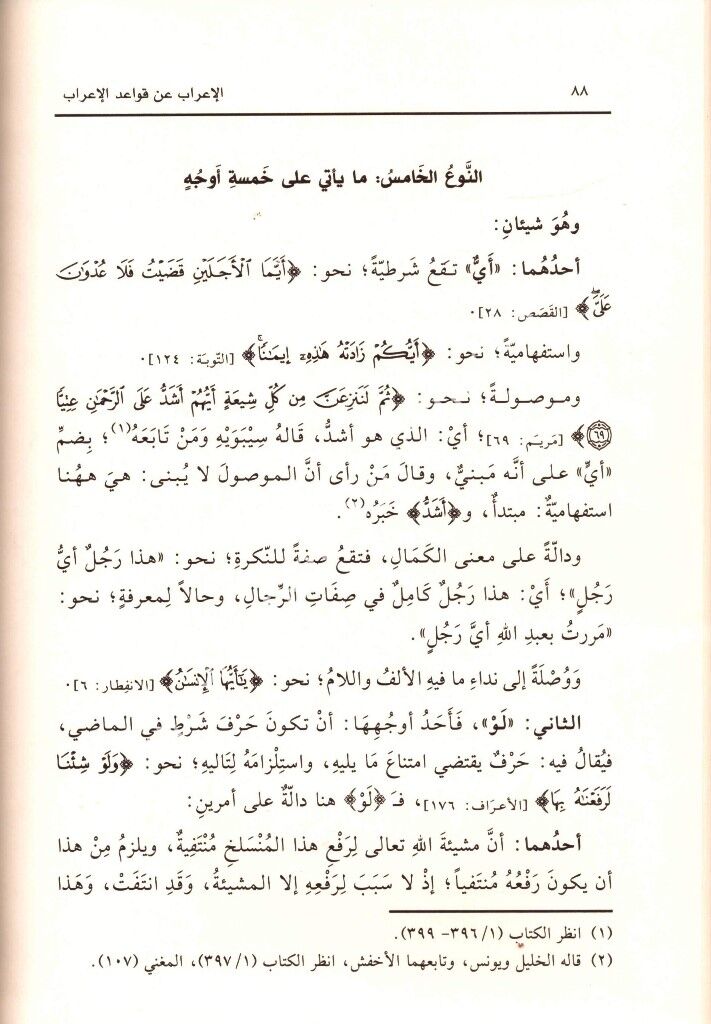 ٨٨ الإعراب عن قواعد الإعراب
النَّوعُ الخَامسُ: ما يأتي على خَمسةِ أوجُهٍ
وهُوَ شيئانِ:
أحدُهُما: «أَيٌّ» تـقـعُ شَرطيّةً؛ نحو: ﴿أَيَّمَا ٱلْأَجَلَيْنِ قَضَيْتُ فَلَا عُدْوَٰنَ
عَلَيَّۖ﴾ [القَصَص: ٢٨].
واستفهاميّةً؛ نحو: ﴿أَيُّكُمْ زَادَتْهُ هَٰذِهِۦٓ إِيمَٰنًاۚ﴾ [التّوبَة: ١٢٤].
ومـوصـولـةً؛ نـحـو: ﴿ثُمَّ لَنَنزِعَنَّ مِن كُلِّ شِيعَةٍ أَيُّهُمْ أَشَدُّ عَلَى ٱلرَّحْمَٰنِ عِتِيًّا
٦٩﴾ [مَريَم: ٦٩]؛ أيْ: الذي هو أشدُّ، قَالهُ سِيْبَوَيْهِ وَمَنْ تابَعَهُ(١)؛ بِضمِّ
«أيٍّ» على أنَّه مَبنيٌّ، وقالَ مَنْ رأى أنَّ الموصولَ لا يُبنى: هيَ ههُنا
استفهاميّةٌ: مبتدأٌ، و﴿أَشَدُّ﴾ خَبَرُه(٢).
ودالّةً على معنى الكَمَالِ، فتقعُ صفةً للنّكرةِ؛ نحو: «هذا رَجُلٌ أيُّ
رَجُلٍ»؛ أيْ: هذا رَجُلٌ كَامِلٌ في صِفَاتِ الرِّجالِ، وحالاً لِمعرفةٍ؛ نحو:
«مَررتُ بعبدِ اللهِ أيَّ رَجُلٍ».
وَوُصْلَةً إلى نداءِ ما فيهِ الألفُ واللامُ؛ نحو: ﴿يَٰٓأَيُّهَا ٱلْإِنسَٰنُ﴾ [الانفِطار: ٦].
الثاني: «لَوْ»، فَأَحَدُ أوجُهِهَا: أنْ تكونَ حَرْفَ شَرْطٍ في الماضي،
فيُقالُ فيه: حَرْفٌ يقتضي امتناعَ مَا يليهِ، واستِلْزامَهُ لِتاليهِ؛ نحو: ﴿وَلَوْ شِئْنَا
لَرَفَعْنَٰهُ بِهَا﴾ [الأعرَاف: ١٧٦]، فـَ ﴿لَوْ﴾ هنا دالّةٌ على أمرينِ:
أحدُهما: أنَّ مشيئةَ اللهِ تعالى لِرَفْعِ هذا المُنْسَلخِ مُنْتَفِيةٌ، ويلزمُ مِنْ هذا
أن يكونَ رَفْعُهُ مُنتَفياً؛ إذْ لا سَبَبَ لِرَفْعِهِ إلا المشيئةُ، وَقَدِ انتَفَتْ، وَهَذا
(١) انظر الكتاب (١/ ٣٩٦- ٣٩٩).
(٢) قاله الخليل ويونس، وتابعهما الأخفش، انظر الكتاب (١/ ٣٩٧)، المغني (١٠٧).